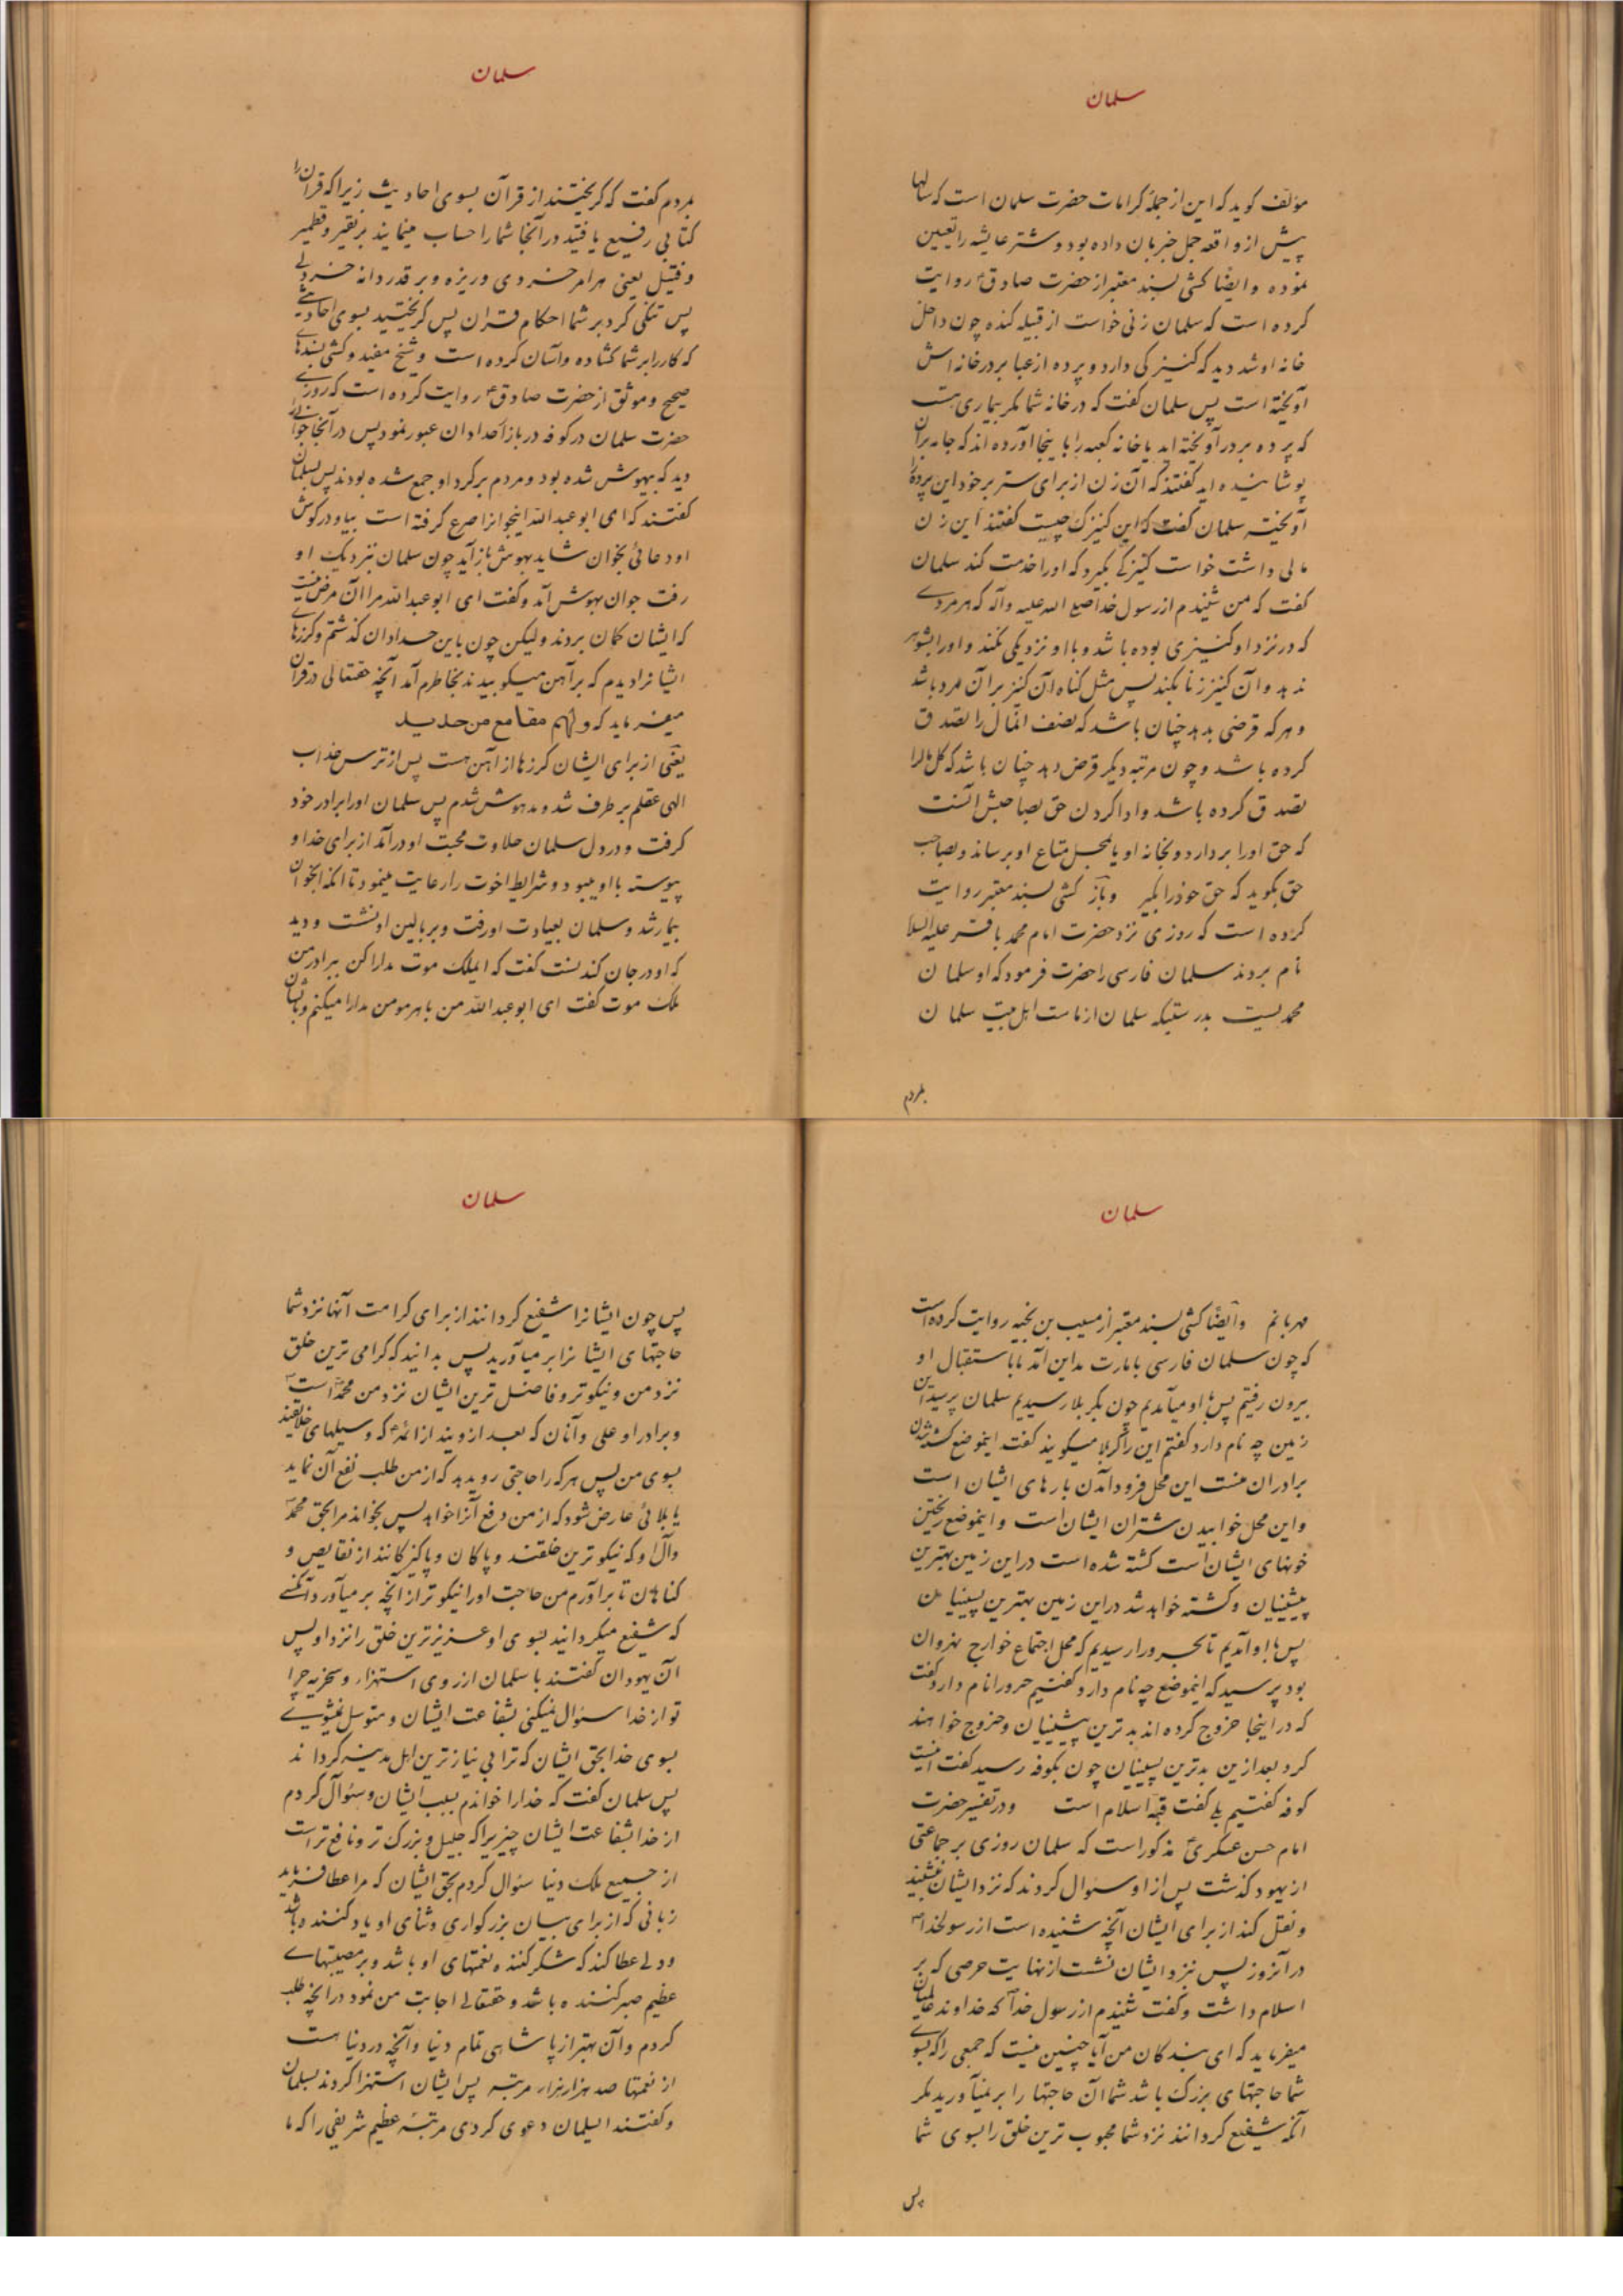 سلمان
مؤلف گوید که این از جملهٔ کرامات حضرت سلمان است که سالها
پیش از واقعه جمل خبر بان داده بود و شتر عایشه را تعیین
نموده و ایضا کشی بسند معتبر از حضرت صادق ع روایت
کرده است که سلمان زنی خواست از قبیله کنده چون داخل
خانه او شد دید که کنیزکی دارد و پرده از عبا بر در خانه اش
آویخته است پس سلمان گفت که در خانه شما مگر بیماری هست
که پرده بر در آویخته اید یا خانه کعبه را باینجا آورده اند که جامه بران
پوشانیده اید گفتند که آن زن از برای ستر بر خود این پرده را
آویخته سلمان گفت که این کنیزک چیست گفتند این زن
مالی داشت خواست کنیزکی بگیرد که او را خدمت کند سلمان
گفت که من شنیدم از رسول خدا صلی الله علیه وآله که هر مردے
که در نزد او کنیزی بوده باشد و با او نزدیکی نکند و او را بشوهر
ندهد و آن کنیز زنا بکند پس مثل گناه آن کنیز بر آن مرد باشد
و هر که قرضی بدهد چنان باشد که نصف انمال را تصدق
کرده باشد و چون مرتبه دیگر قرض دهد چنان باشد که کل مالرا
تصدق کرده باشد و ادا کردن حق بصاحبش آنست
که حق او را بردارد و بخانه او یا بمحل متاع او برساند و بصاحب
حق بگوید که حق خود را بگیر وباز کشی بسند معتبر روایت
کرده است که روزی نزد حضرت امام محمد باقر علیه السلا
نام بردند سلمان فارسی را حضرت فرمود که او سلمان
محمدیست بدرستیکه سلمان از ماست اهل بیت سلمان
بمردم
سلمان
بمردم گفت که گریختیند از قرآن بسوی احادیث زیرا که قرآن را
کتابی رفیع یافتید در آنجا شما را حساب مینمایند بر نقیر و قطمیر
و فتیل یعنی هر امر خردی و ریزه و بر قدر دانه خردلے
پس تنگی کرد بر شما احکام قران پس گریختید بسوی احادیثے
که کار را بر شما گشاده و آسان کرده است و شیخ مفید و کشی بسندهاے
صحیح و موثق از حضرت صادق ع روایت کرده است که روزے
حضرت سلمان در کوفه در بازار حدادان عبور نمود پس در آنجا جوانے
دید که بیهوش شده بود و مردم بر گرد او جمع شده بودند پس بسلمان
گفتند که ای ابو عبدالله اینجوانرا صرع گرفته است بیا و در گوش
او دعائی بخوان شاید بهوش باز آید چون سلمان نزدیک او
رفت جوان بهوش آمد و گفت ای ابو عبدالله مرا آن مرض نیست
که ایشان گمان بردند ولیکن چون باین حدادان گذشتم و گرزهاے
ایشانرا دیدم که بر آهن میکوبیدند بخاطرم آمد آنچه حقتعالی در قرآن
میفرماید که ولهم مقامع من حدید
یعنی از برای ایشان گرزها از آهن هست پس از ترس عذاب
الهی عقلم بر طرف شد و مدهوش شدم پس سلمان او را برادر خود
گرفت و در دل سلمان حلاوت محبت او در آمد از برای خدا و
پیوسته با او میبود و شرایط اخوت را رعایت مینمود تا انکه انجوان
بیمار شد و سلمان بعیادت او رفت و بر بالین او نشست و دید
که او در جان کندنست گفت که ایملک موت مدارا کن ببرادر من
ملک موت گفت ای ابو عبدالله من با هر مومن مدارا میکنم و بایشان
سلمان
مهربانم وایضًا کشی بسند معتبر از مسیب بن نجیه روایت کرده است
که چون سلمان فارسی بامارت مداین آمد ما باستقبال او
بیرون رفتیم پس با او میآمدیم چون بکربلا رسیدیم سلمان پرسید این
زمین چه نام دارد گفتم این را کربلا میگویند گفت اینموضع کشته شدن
برادران منست این محل فرود آمدن بارهای ایشان است
و این محل خوابیدن شتران ایشان است و اینموضع ریختن
خونهای ایشان است کشته شده است در این زمین بهترین
پیشینیان و کشته خواهد شد در این زمین بهترین پسینیان
پس با او آمدیم تا بحرورا رسیدیم که محل اجتماع خوارج نهروان
بود پرسید که اینموضع چه نام دارد گفتیم حرورا نام دارد گفت
که در اینجا خروج کرده اند بدترین پیشینیان و خروج خواهند
کرد بعد ازین بدترین پسینیان چون بکوفه رسید گفت اینست
کوفه گفتیم بلے گفت قبّهٔ اسلام است ودر تفسیر حضرت
امام حسن عسکری ع مذکور است که سلمان روزی بر جماعتی
از یهود گذشت پس از او سئوال کردند که نزد ایشان بنشیند
و نقل کند از برای ایشان آنچه شنیده است از رسولخدا ص
در آنروز پس نزد ایشان نشست از نهایت حرصی که بر
اسلام داشت و گفت شنیدم از رسول خدا ص که خداوند عالمیان
میفرماید که ای بندگان من آیا چنین نیست که جمعی را که بسوے
شما حاجتهای بزرگ باشد شما آن حاجتها را بر نمیآورید مگر
آنکه شفیع گردانند نزد شما محبوب ترین خلق را بسوی شما
پس
سلمان
پس چون ایشانرا شفیع گردانند از برای کرامت آنها نزد شما
حاجتهای ایشانرا بر میآورید پس بدانید که گرامی ترین خلق
نزد من و نیکوتر و فاضل ترین ایشان نزد من محمد است
و برادر او علی و آنان که بعد ازویند از ائمه ع که وسیلهای خلایقند
بسوی من پس هر که را حاجتی رو بدهد که از من طلب نفع آن نماید
یا بلائی عارض شود که از من دفع آنرا خواهد پس بخواند مرا بحق محمد ص
وآل او که نیکو ترین خلقند و پاکان و پاکیزگانند از نقایص و
گناهان تا برآورم من حاجت او را نیکوتر از آنچه بر میآورد آنکسے
که شفیع میگردانید بسوی او عزیزترین خلق را نزد او پس
آن یهودان گفتند با سلمان از روی استهزاء و سخریه چرا
تو از خدا سئوال نمیکنی بشفاعت ایشان و متوسل نمیشوے
بسوی خدا بحق ایشان که ترا بی نیازترین اهل مدینه گرداند
پس سلمان گفت که خدا را خواندم بسبب ایشان و سئوال کردم
از خدا بشفاعت ایشان چیزیرا که جلیل و بزرگ تر و نافع تر است
از جمیع ملک دنیا سئوال کردم بحق ایشان که مرا عطا فرماید
زبانی که از برای بیان بزرگواری و ثنای او یاد کننده باشد
و دلے عطا کند که شکر کننده نعمتهای او باشد و بر مصیبتهاے
عظیم صبر کننده باشد و حقتعالے اجابت من نمود در آنچه طلب
کردم و آن بهتر از پادشاهی تمام دنیا و آنچه در دنیا هست
از نعمتها صد هزار هزار مرتبه پس ایشان استهزا کردند بسلمان
و گفتند ایسلمان دعوی کردی مرتبهٔ عظیم شریفی را که ما